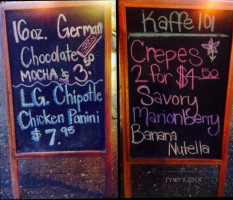 16oz. German
Chocolate
MOCHA $3.
LG. Chipotle
Chicken Panini
$7.95
Kaffe 101
Crepes
2 for $4.50
Savory
Marionberry
Banana
Nutella
menupix